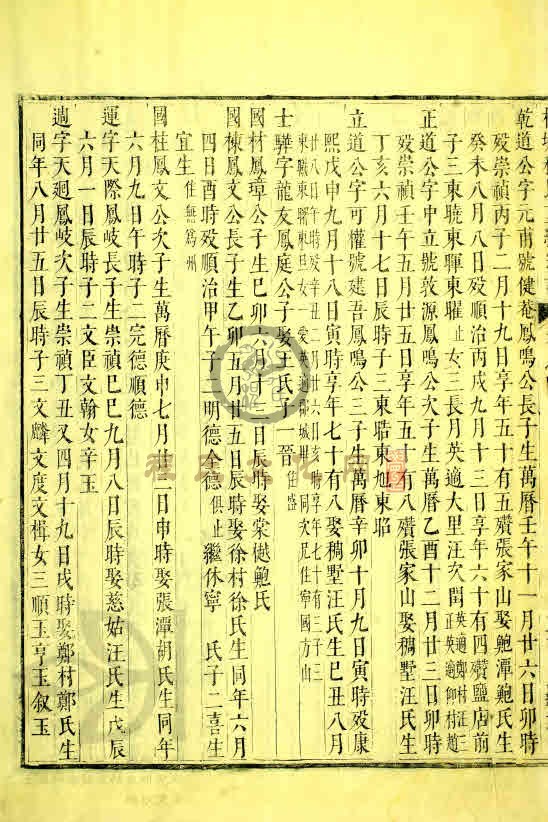 乾道公字元甫號健菴鳳鳴公長子生萬曆壬午十一月廿六日卯時
歿崇禎丙子二月十九日享年五十有五殯張家山娶鮑潭鮑氏生
癸未八月八日歿順治丙戌九月十三日享年六十有四殯鹽店前
子三東曉東暉東曜止女三長月英適大里汪次閏英適鄭村汪三正英適仰村趙
正道公字中立號敦源鳳鳴公次子生萬曆乙酉十二月廿三日卯時
歿崇禎壬午五月廿五日享年五十有八殯張家山娶稠墅汪氏生
丁亥六月十七日辰時子三東晧東旭東昭
立道公字可權號建吾鳳鳴公三子生萬曆辛卯十月九日寅時歿康
熙戊申九月十八日寅時享年七十有八娶稠墅汪氏生己丑八月
廿八日午時歿辛丑二月廿六日亥時享年七十有三子三
東職東聯東旦女一愛英適鄭城畢同次兄住寧國方山
士驊字龍友鳳庭公子娶王氏子一晉住盛
國材鳳璋公子生己卯六月十三日辰時娶棠樾鮑氏
國棟鳳文公長子生乙卯五月廿五日辰時娶徐村徐氏生同年六月
四日酉時歿順治甲午子二明德全德俱止繼休寧 氏子二喜生
宜生住無為州
國柱鳳文公次子生萬曆庚申七月廿二日申時娶張潭胡氏生同年
六月九日午時子二完德順德
運字天際鳳岐長子生崇禎己巳九月八日辰時娶慈姑汪氏生戊辰
六月一日辰時子二文臣文翰女辛玉
週字天廻鳳岐次子生崇禎丁丑又四月十九日戌時娶鄭村鄭氏生
同年八月廿五日辰時子三文麟文度文楫女三順玉亨玉叙玉